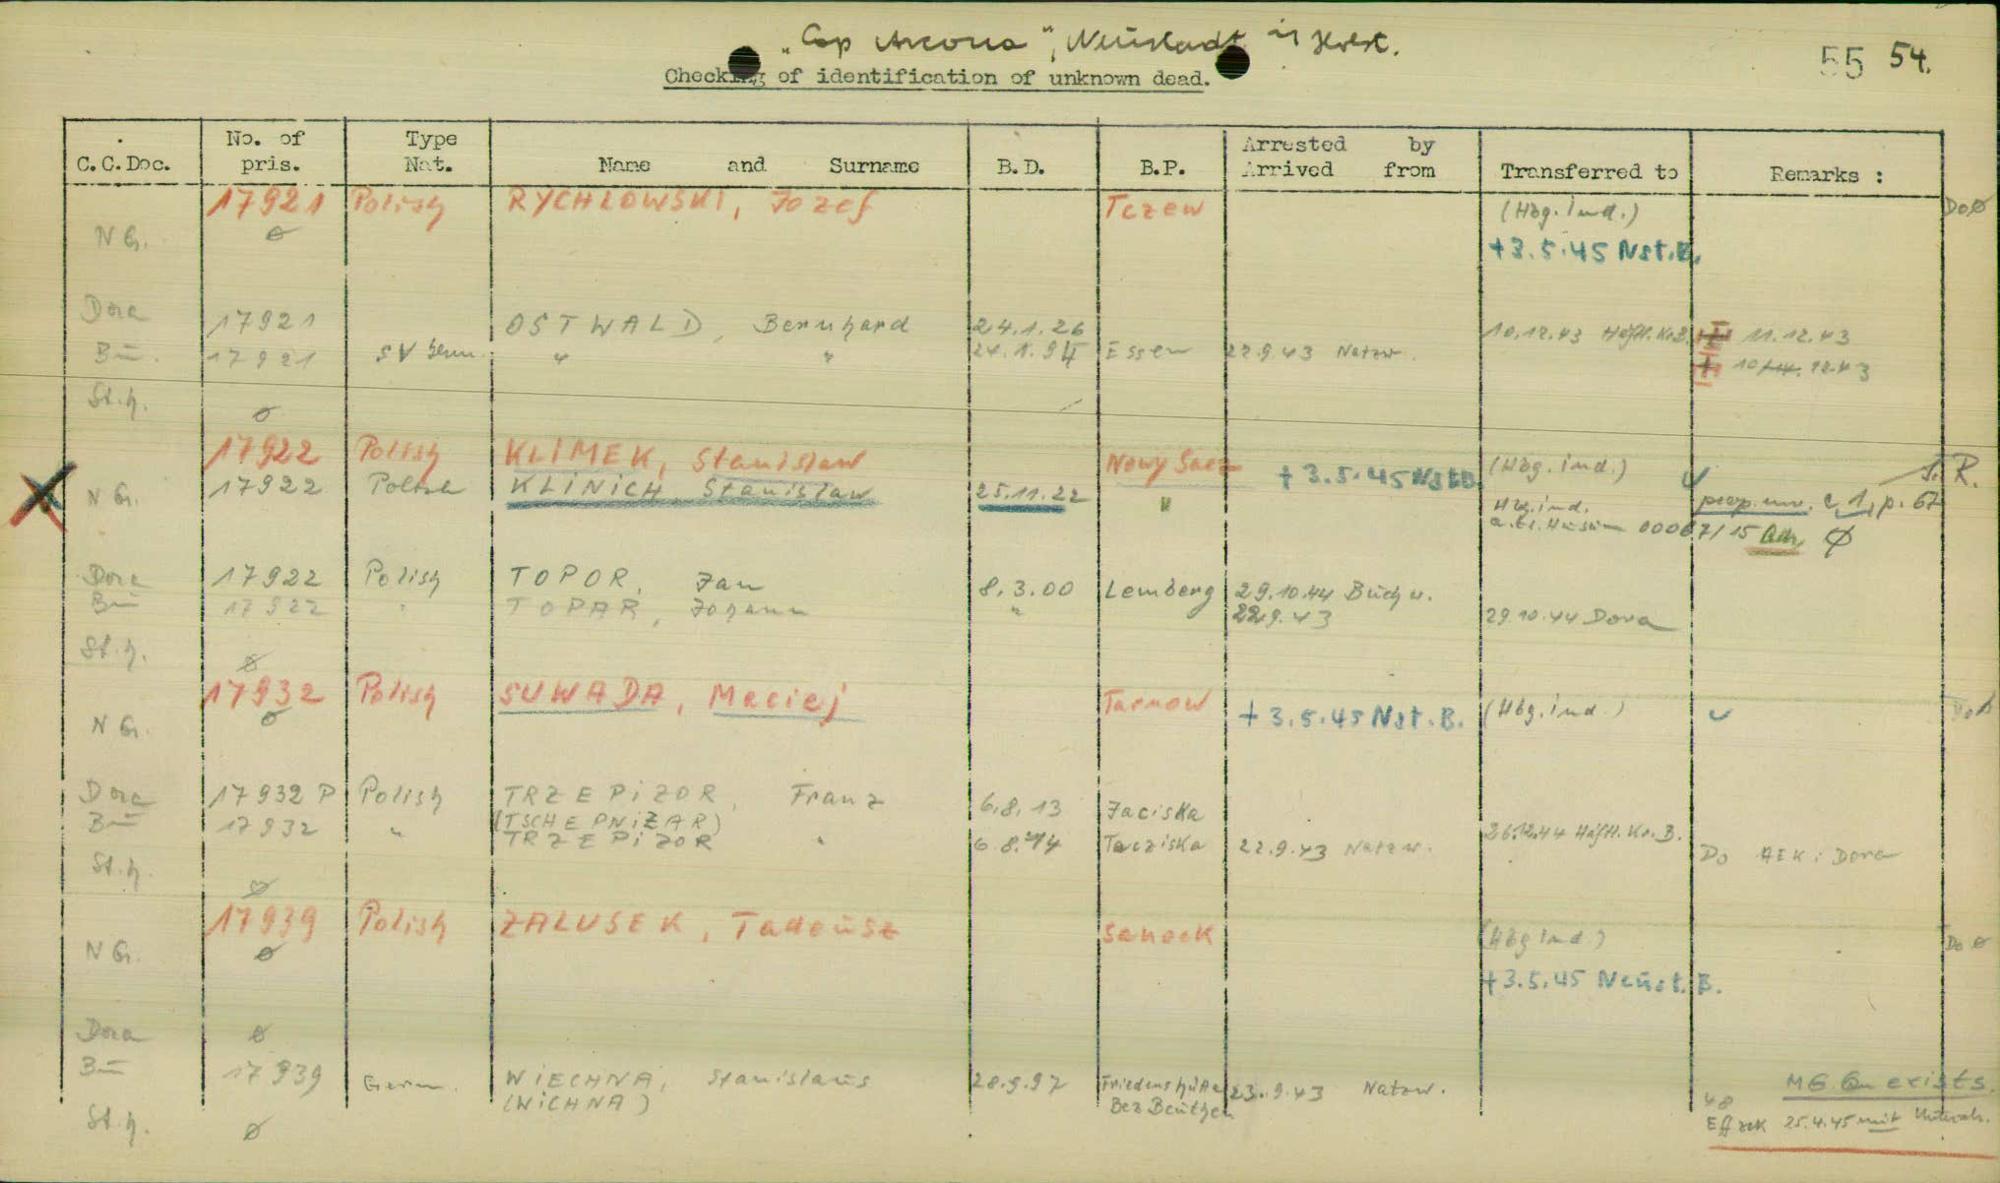 „Cap Arcona", Neustadt in Holst.
Checking of identification of unknown dead.
55 54.
C.C.Doc. No. of pris. Type Nat. Name and Surname B.D. B.P. Arrested by Arrived from Transferred to Remarks :
17921 Polish RYCHLOWSKI, Jozef Tczew (Hbg. ind.) Do ø
N G. ø +3.5.45 Nst.B.
Dora 17921 OSTWALD, Bernhard 24.1.26 10.12.43 Häftl.Kr.B. 11.12.43
Bu. 17921 SV Germ. " " 24.1.94 Essen 22.9.43 Natzw. + 10 12.43
St.h. ø
17922 Polish KLIMEK, Stanislaw Nowy Sacz + 3.5.45 Nst.B. (Hbg. ind.) R.
N G. 17922 Polish KLINICH, Stanislaw 25.11.22 " Hbg.ind. c 1, p. 67
00067/15 ø
Dora 17922 Polish TOPOR, Jan 8.3.00 Lemberg 29.10.44 Buchw.
Bu 17922 " TOPAR, Johann " 22.9.43 29.10.44 Dora
St.h. ø
17932 Polish SUWADA, Maciej Tarnow + 3.5.45 Nst.B. (Hbg. ind.) Do ø
N G. ø
Dora 17932 P Polish TRZEPIZOR, Franz 6.8.13 Jaciska
Bu 17932 " (TSCHEPNIZAR) 26.12.44 Häftl.Kr.B.
TRZEPIZOR " 6.8.14 Tacziska 22.9.43 Natzw. Do AEK: Dora
St.h. ø
17939 Polish ZALUSEK, Tadeusz Sanock (Hbg ind.) Do ø
N G. ø +3.5.45 Neust. B.
Dora ø
Bu 17939 Germ. WIECHNA, Stanislaus 28.9.97 Friedenshütte 23.9.43 Natzw. exists.
(WICHNA) Bez Beuthen 48
St.h. ø Eff 25.4.45 mit